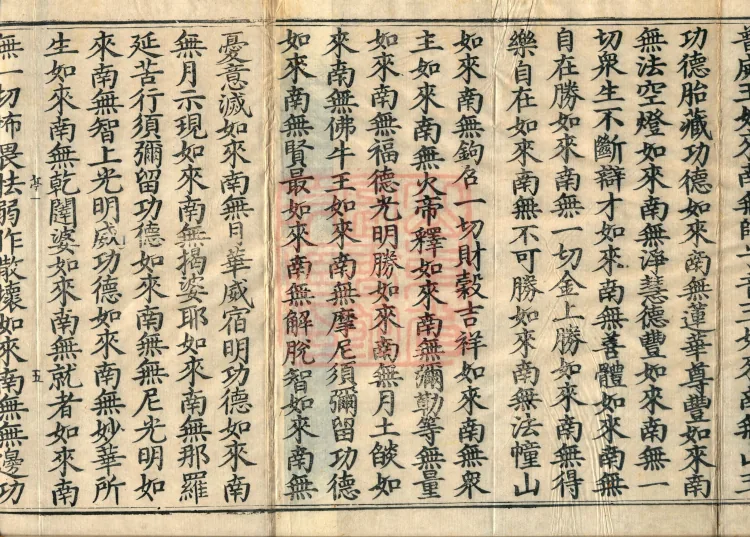 功德胎藏功德如來南無蓮華尊豐如來南
無法空燈如來南無淨慧德豐如來南無一
切衆生不斷辯才如來南無善體如來南無
自在勝如來南無一切金上勝如來南無得
樂自在如來南無不可勝如來南無法幢山
如來南無鉤召一切財穀吉祥如來南無衆
主如來南無火帝釋如來南無彌勤等無量
如來南無福德光明勝如來南無月上燄如
來南無佛牛王如來南無摩尼須彌留功德
如來南無賢最如來南無解脫智如來南無
憂意滅如來南無日華威宿明功德如來南
無月示現如來南無揭婆耶如來南無那羅
延苦行須彌留功德如來南無無尼光明如
來南無智上光明威功德如來南無妙華所
生如來南無乾闥婆如來南無就者如來南
五
無一切怖畏怯弱作散壞如來南無無邊功